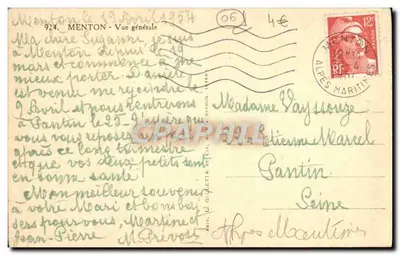 Menton le 19 Avril 1954
924. MENTON - Vue générale
06
4€
Ma chère Suzanne je suis
à Menton depuis le 19
mars et commence à me
mieux porter. Daniel
est venu me rejoindre le
9 Avril et nous rentrons
à Pantin le 25. J'espère que
vous vous reposez
après ce long trimestre
et que vos deux petits sont
en bonne santé
Mon meilleur souvenir
à votre Mari et bons baisers
pour vous, Martine et
Jean-Pierre
M. Prévost
12F
RF
MENTON
ALPES MARITIMES
Madame Vayssouze
39 Rue Etienne Marcel
Pantin
Seine
Alpes Maritimes
CPARAMA